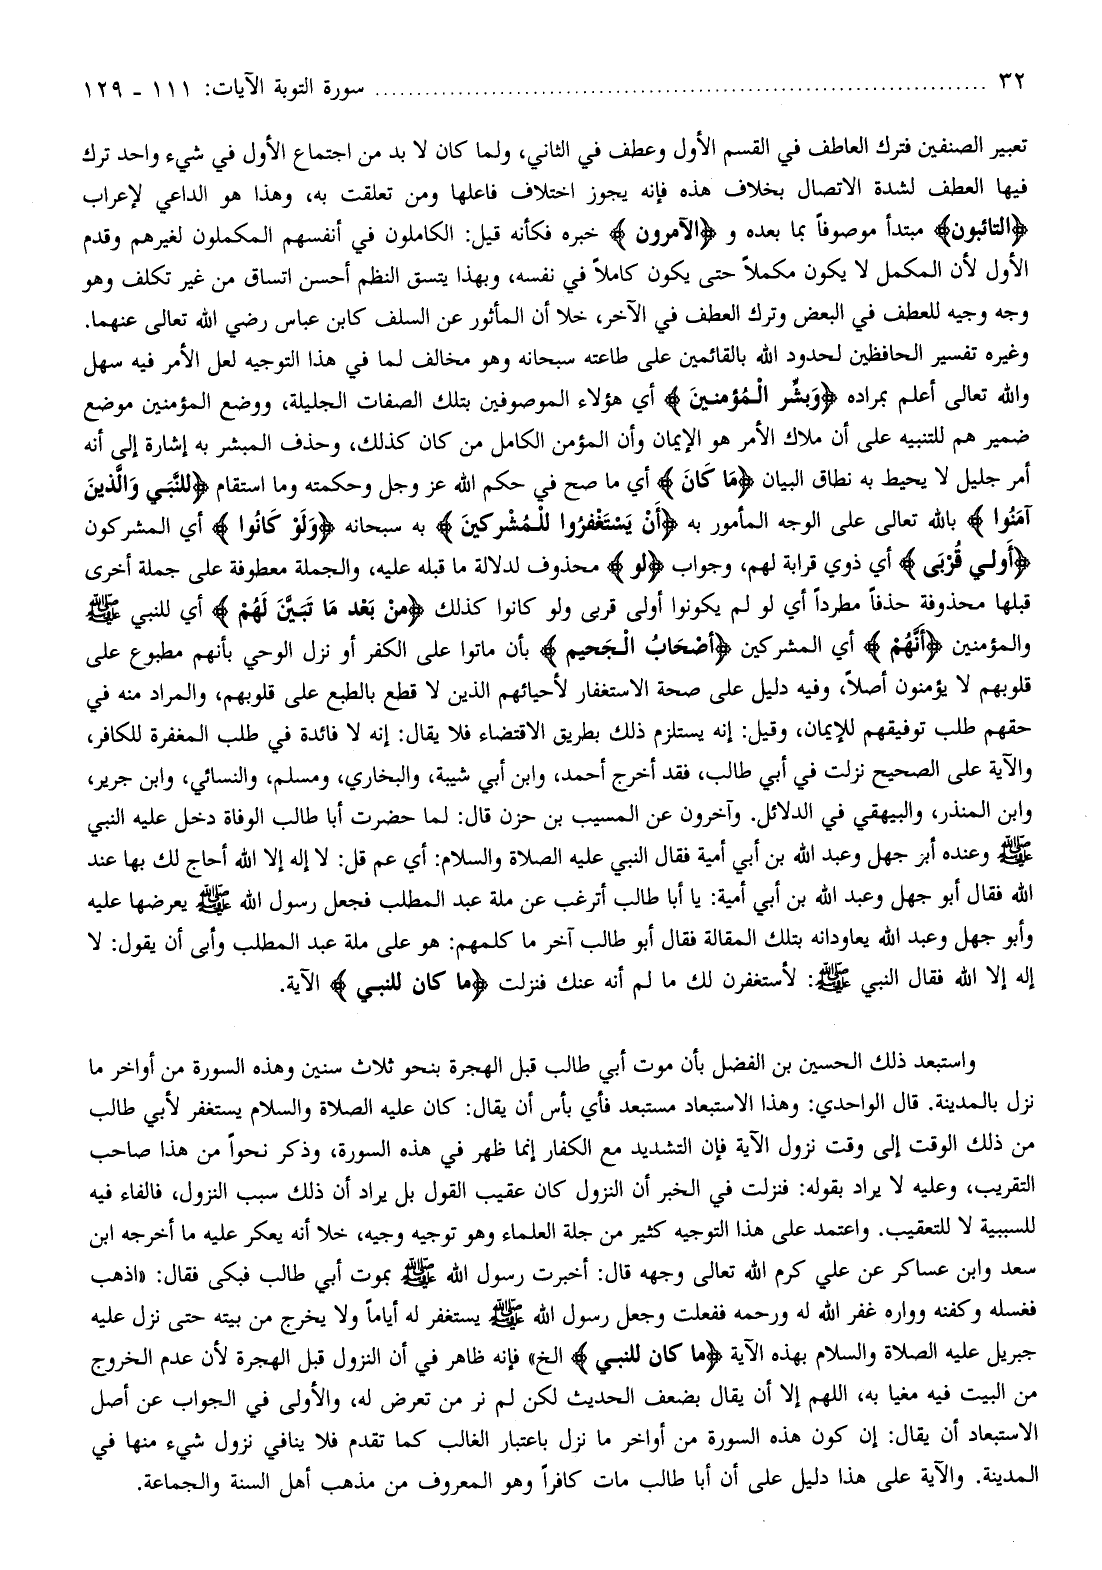 ٣٢ ........................................................ سورة التوبة الآيات: ١١١ ـ ١٢٩
تعبير الصنفين فترك العاطف في القسم الأول وعطف في الثاني، ولما كان لا بد من اجتماع الأول في شيء واحد ترك
فيها العطف لشدة الاتصال بخلاف هذه فإنه يجوز اختلاف فاعلها ومن تعلقت به، وهذا هو الداعي لإعراب
﴿التائبون﴾ مبتدأ موصوفاً بما بعده و ﴿الآمرون﴾ خبره فكأنه قيل: الكاملون في أنفسهم المكملون لغيرهم وقدم
الأول لأن المكمل لا يكون مكملاً حتى يكون كاملاً في نفسه، وبهذا يتسق النظم أحسن اتساق من غير تكلف وهو
وجه وجيه للعطف في البعض وترك العطف في الآخر، خلا أن المأثور عن السلف كابن عباس رضي الله تعالى عنهما.
وغيره تفسير الحافظين لحدود الله بالقائمين على طاعته سبحانه وهو مخالف لما في هذا التوجيه لعل الأمر فيه سهل
والله تعالى أعلم بمراده ﴿وَبَشِّرِ الْمُؤمنينَ﴾ أي هؤلاء الموصوفين بتلك الصفات الجليلة، ووضع المؤمنين موضع
ضمير هم للتنبيه على أن ملاك الأمر هو الإيمان وأن المؤمن الكامل من كان كذلك، وحذف المبشر به إشارة إلى أنه
أمر جليل لا يحيط به نطاق البيان ﴿مَا كَانَ﴾ أي ما صح في حكم الله عز وجل وحكمته وما استقام ﴿للنَّبَي وَالَّذينَ
آمَنُوا﴾ بالله تعالى على الوجه المأمور به ﴿أَنْ يَسْتَغْفرُوا للْمُشْركينَ﴾ به سبحانه ﴿وَلَوْ كَانُوا﴾ أي المشركون
﴿أُولي قُرْبَى﴾ أي ذوي قرابة لهم، وجواب ﴿لو﴾ محذوف لدلالة ما قبله عليه، والجملة معطوفة على جملة أخرى
قبلها محذوفة حذفاً مطرداً أي لو لم يكونوا أولى قربى ولو كانوا كذلك ﴿منْ بَعْد مَا تَبَيَّنَ لَهُمْ﴾ أي للنبي ﷺ
والمؤمنين ﴿أَنَّهُمْ﴾ أي المشركين ﴿أصْحَابُ الْجَحيم﴾ بأن ماتوا على الكفر أو نزل الوحي بأنهم مطبوع على
قلوبهم لا يؤمنون أصلاً، وفيه دليل على صحة الاستغفار لأحيائهم الذين لا قطع بالطبع على قلوبهم، والمراد منه في
حقهم طلب توفيقهم للإيمان، وقيل: إنه يستلزم ذلك بطريق الاقتضاء فلا يقال: إنه لا فائدة في طلب المغفرة للكافر،
والآية على الصحيح نزلت في أبي طالب، فقد أخرج أحمد، وابن أبي شيبة، والبخاري، ومسلم، والنسائي، وابن جرير،
وابن المنذر، والبيهقي في الدلائل. وآخرون عن المسيب بن حزن قال: لما حضرت أبا طالب الوفاة دخل عليه النبي
ﷺ وعنده أبو جهل وعبد الله بن أبي أمية فقال النبي عليه الصلاة والسلام: أي عم قل: لا إله إلا الله أحاج لك بها عند
الله فقال أبو جهل وعبد الله بن أبي أمية: يا أبا طالب أترغب عن ملة عبد المطلب فجعل رسول الله ﷺ يعرضها عليه
وأبو جهل وعبد الله يعاودانه بتلك المقالة فقال أبو طالب آخر ما كلمهم: هو على ملة عبد المطلب وأبى أن يقول: لا
إله إلا الله فقال النبي ﷺ: لأستغفرن لك ما لم أنه عنك فنزلت ﴿ما كان للنبي﴾ الآية.
واستبعد ذلك الحسين بن الفضل بأن موت أبي طالب قبل الهجرة بنحو ثلاث سنين وهذه السورة من أواخر ما
نزل بالمدينة. قال الواحدي: وهذا الاستبعاد مستبعد فأي بأس أن يقال: كان عليه الصلاة والسلام يستغفر لأبي طالب
من ذلك الوقت إلى وقت نزول الآية فإن التشديد مع الكفار إنما ظهر في هذه السورة، وذكر نحواً من هذا صاحب
التقريب، وعليه لا يراد بقوله: فنزلت في الخبر أن النزول كان عقيب القول بل يراد أن ذلك سبب النزول، فالفاء فيه
للسببية لا للتعقيب. واعتمد على هذا التوجيه كثير من جلة العلماء وهو توجيه وجيه، خلا أنه يعكر عليه ما أخرجه ابن
سعد وابن عساكر عن علي كرم الله تعالى وجهه قال: أخبرت رسول الله ﷺ بموت أبي طالب فبكى فقال: «اذهب
فغسله وكفنه وواره غفر الله له ورحمه ففعلت وجعل رسول الله ﷺ يستغفر له أياماً ولا يخرج من بيته حتى نزل عليه
جبريل عليه الصلاة والسلام بهذه الآية ﴿ما كان للنبي﴾ الخ» فإنه ظاهر في أن النزول قبل الهجرة لأن عدم الخروج
من البيت فيه مغيا به، اللهم إلا أن يقال بضعف الحديث لكن لم نر من تعرض له، والأولى في الجواب عن أصل
الاستبعاد أن يقال: إن كون هذه السورة من أواخر ما نزل باعتبار الغالب كما تقدم فلا ينافي نزول شيء منها في
المدينة. والآية على هذا دليل على أن أبا طالب مات كافراً وهو المعروف من مذهب أهل السنة والجماعة.